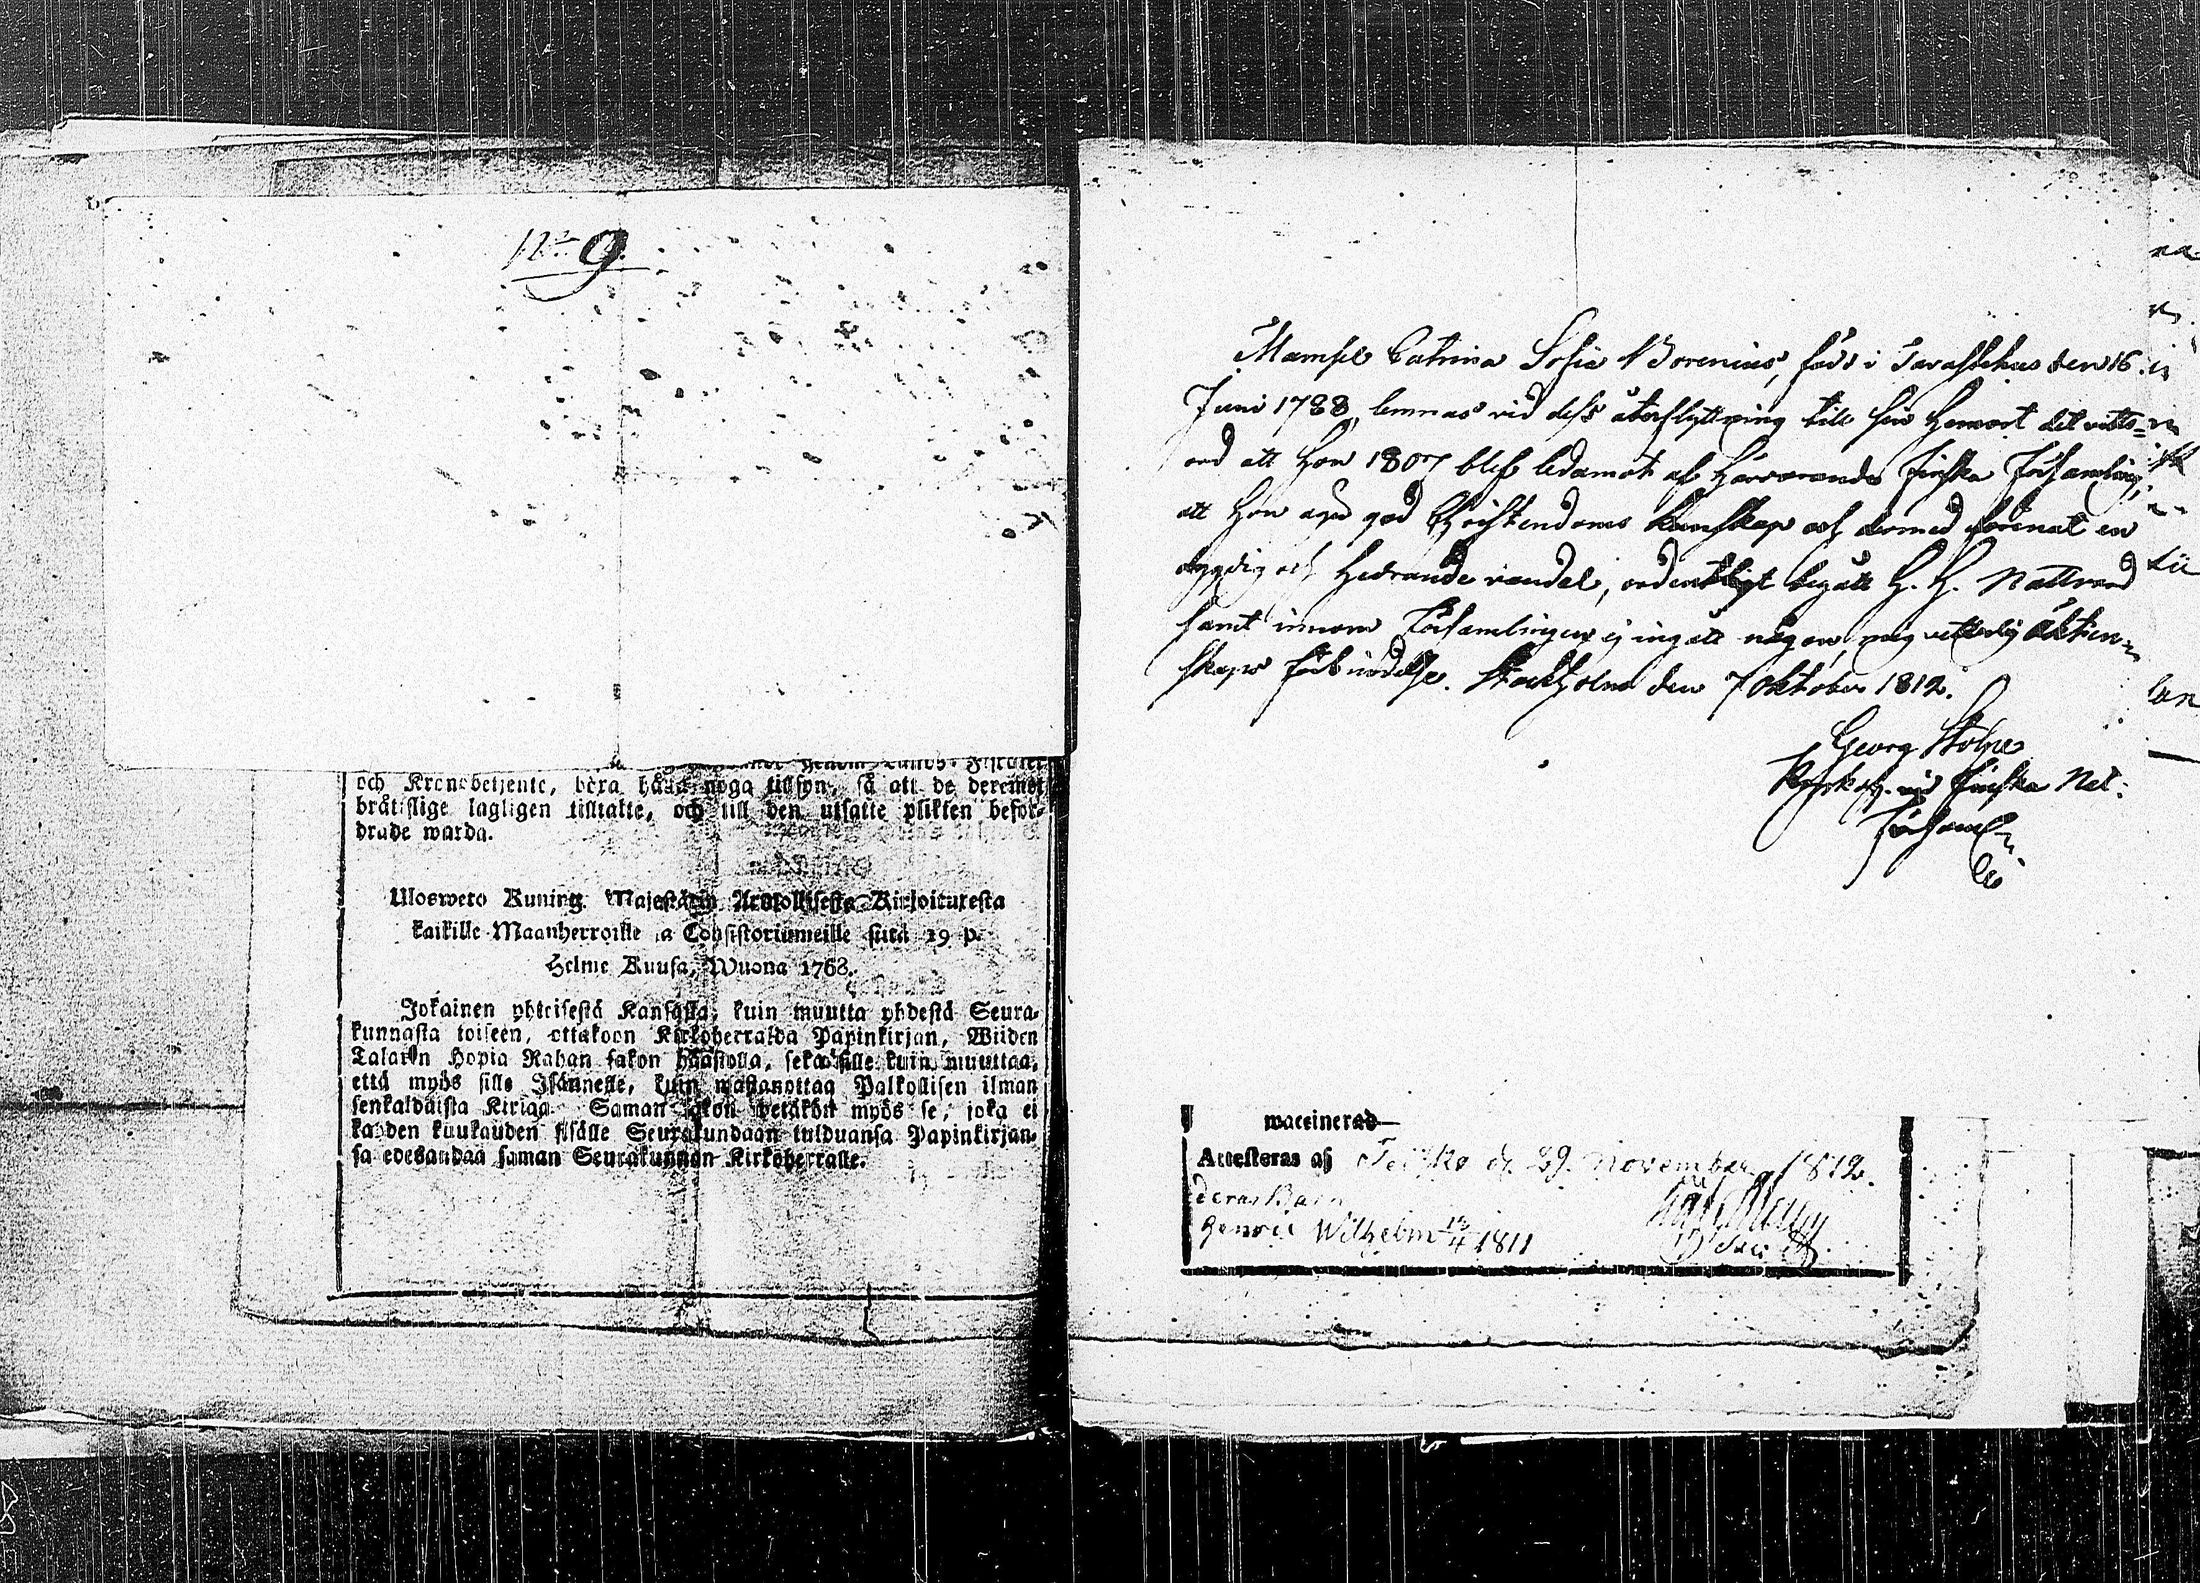 No 9.
och Kronobetjente, böra hålla noga tillsyn, så att de deremot
bråtislige lagligen tilltalte, och till den utsatte plikten befor-
drade warda.
Ulosweto Kuning. Majestätin Armollisesta Kirjoituxesta
kaikille Maanherroille ja Consistoriumeille siitä 19 p.
Helme Kuusa, Wuona 1763.
Jokainen yhteisestä Kansasta, kuin muutta yhdestä Seura-
kunnasta toiseen, ottakoon Kirkoherralda Papinkirjan, Wiiden
Talarin Hopia Rahan sakon haastolla, sekä sille kuin muuttaa,
että myös sille Isännelle, kuin wastanottaa Palkollisen ilman
senkaldaista Kirjaa. Saman sakon wetäkön myös se, joka ei
kahden kuukauden sisälle Seurakundaan tulduansa Papinkirjan-
sa edesandaa saman Seurakunnan Kirkoherralle.
Mamsel Catrina Sofia Borenius, född i Tavastehus den 16
Juni 1788, lemnas vid dess återflyttning till sin Hemort det vitts-
ord att Hon 1807 blef ledamot af Härvarande Finska Församling,
att Hon äger god Christendoms kunskap och dermed förenat en
dygdig och Hedrande vandel, ordentligt begått H. H. Nattvard
samt innom Församlingen ej ingått någon, mig vetterlig äkten-
skaps förbindelse. Stockholm den 7 Oktober 1812.
Georg Stolpe
Kyrkoh. vid Finska Nat:
Församl.
waccinerad
Attesteras af Teisko d. 29. November 1812.
deras Barn
Henric Wilhelm 13/4 1811